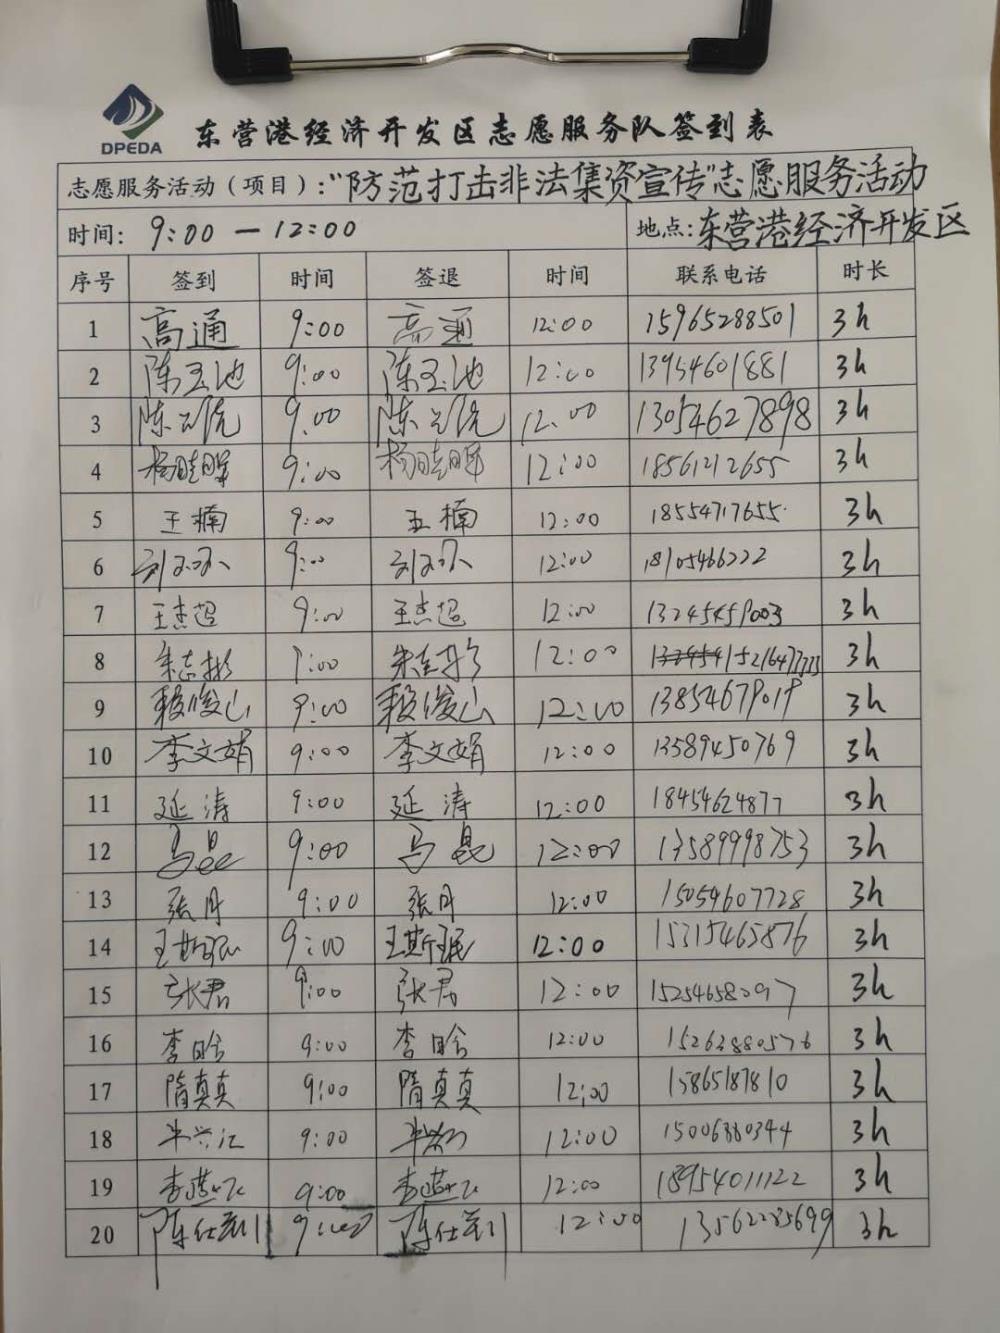 DPEDA
东营港经济开发区志愿服务队签到表
志愿服务活动（项目）："防范打击非法集资宣传"志愿服务活动
时间: 9:00 — 12:00 地点:东营港经济开发区
序号 签到 时间 签退 时间 联系电话 时长
1 高通 9:00 高通 12:00 15965288501 3h
2 陈玉池 9:00 陈玉池 12:00 13954601881 3h
3 陈 9.00 陈 12.00 13054627898 3h
4 杨晓晖 9:00 杨晓晖 12:00 18561212655 3h
5 王楠 9:00 王楠 12:00 18554717655 3h
6 刘 9:00 刘 12:00 18105466222 3h
7 王杰超 9:00 王杰超 12:00 3h
8 朱志彬 9:00 朱志彬 12:00 3h
9 赖俊山 9:00 赖俊山 12:00 13854679019 3h
10 李文娟 9:00 李文娟 12:00 13589450769 3h
11 延涛 9:00 延涛 12:00 18454624877 3h
12 马晨 9:00 马晨 12:00 13589998753 3h
13 张月 9:00 张月 12:00 15054607728 3h
14 王斯珉 9:00 王斯珉 12:00 15315465876 3h
15 张君 9:00 张君 12:00 15254658097 3h
16 李晗 9:00 李晗 12:00 15262880576 3h
17 隋真真 9:00 隋真真 12:00 15865187810 3h
18 9:00 12:00 15006880344 3h
19 李 9:00 李 12:00 18954011122 3h
20 陈仕 9:00 陈仕 12:00 13562285699 3h